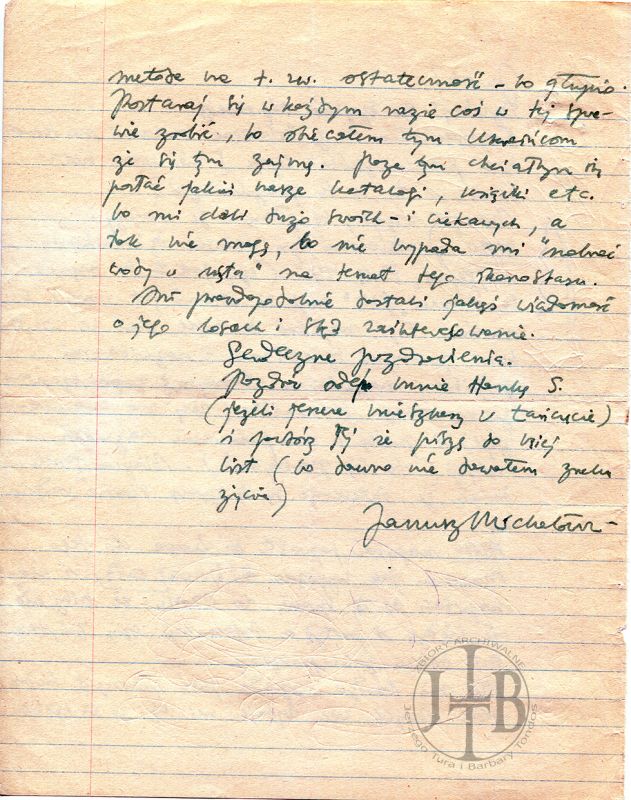 metodę na t. zw. ostateczność - to głupio.
Postaraj się w każdym razie coś w tej spra-
wie zrobić, bo obiecałem tym Ukraińcom
że się tym zajmę. Poza tym chciałbym im
posłać jakieś nasze katalogi, książki etc.
bo mi dali dużo swoich - i ciekawych, a
tak nie mogę, bo nie wypada mi "nabrać
wody w usta" na temat tego ikonostasu.
Oni prawdopodobnie dostali jakąś wiadomość
o jego losach i stąd zainteresowanie.
Serdeczne pozdrowienia.
Pozdrów ode mnie Hankę S.
(jeżeli jeszcze mieszka w Łańcucie)
i powtórz Jej że piszę do niej
list (bo dawno nie dawałem znaku
życia)
Janusz Michałow-
ZBIORY ARCHIWALNE
JTB
Jerzego Tura i Barbary Tondos